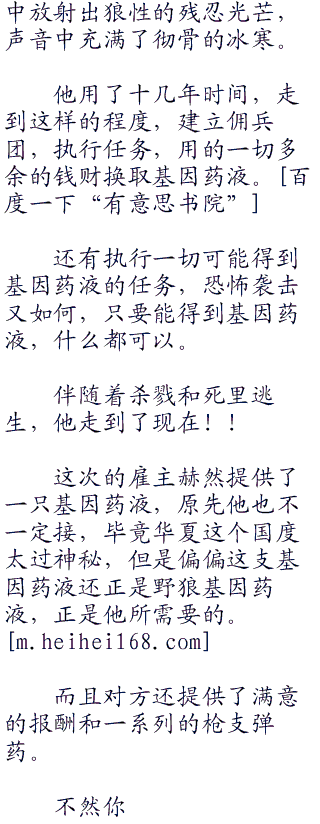 中放射出狼性的残忍光芒，
声音中充满了彻骨的冰寒。
他用了十几年时间，走
到这样的程度，建立佣兵
团，执行任务，用的一切多
余的钱财换取基因药液。[百
度一下“有意思书院”]
还有执行一切可能得到
基因药液的任务，恐怖袭击
又如何，只要能得到基因药
液，什么都可以。
伴随着杀戮和死里逃
生，他走到了现在！！
这次的雇主赫然提供了
一只基因药液，原先他也不
一定接，毕竟华夏这个国度
太过神秘，但是偏偏这支基
因药液还正是野狼基因药
液，正是他所需要的。
[m.heihei168.com]
而且对方还提供了满意
的报酬和一系列的枪支弹
药。
不然你